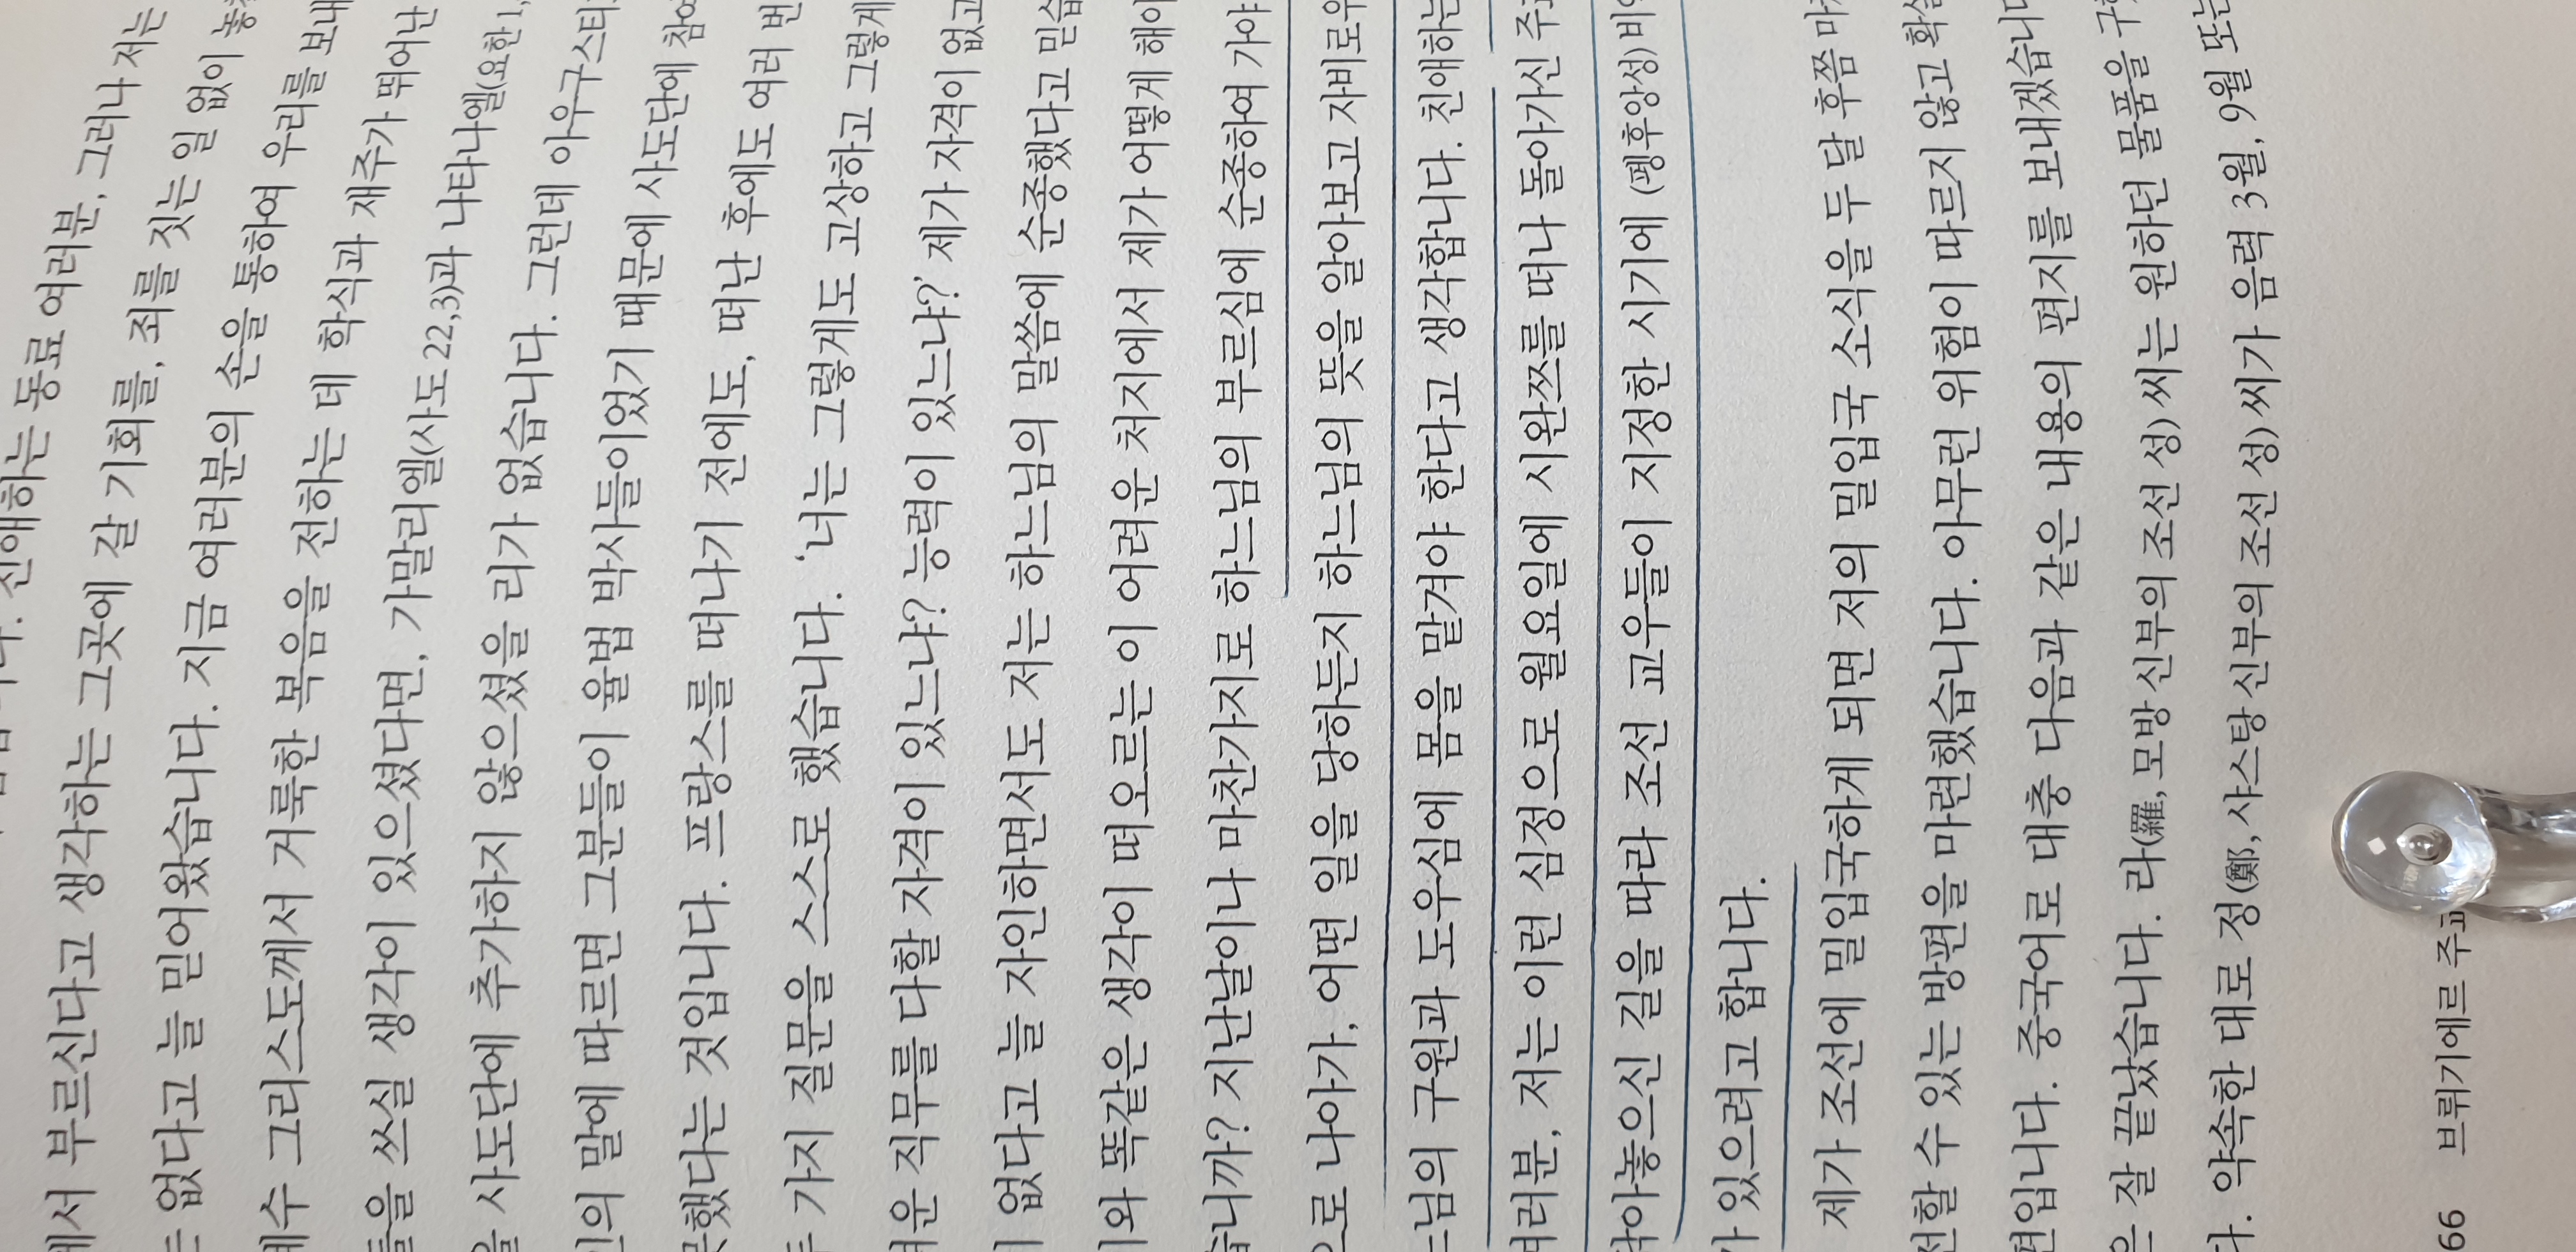 친애하는 동료 여러분, 그러나 저는
부르신다고 생각하는 그곳에 갈 기회를, 죄를 짓는 일 없이
없다고 늘 믿어왔습니다. 지금 여러분의 손을 통하여 우리를
그리스도께서 거룩한 복음을 전하는 데 학식과 재주가 뛰어난
쓰실 생각이 있으셨다면, 가말리엘(사도 22,3)과 나타나엘(요한 1,
사도단에 추가하지 않으셨을 리가 없습니다. 그런데
말에 따르면 그분들이 율법 박사들이었기 때문에 사도단에
것입니다. 프랑스를 떠나기 전에도, 떠난 후에도 여러 번
가지 질문을 스스로 했습니다. ‘너는 그렇게도 고상하고 그렇게
직무를 다할 자격이 있느냐? 능력이 있느냐?’ 제가 자격이 없고
없다고 늘 자인하면서도 저는 하느님의 말씀에 순종했다고
똑같은 생각이 떠오르는 이 어려운 처지에서 제가 어떻게
지난날이나 마찬가지로 하느님의 부르심에 순종하여 가야
나아가, 어떤 일을 당하든지 하느님의 뜻을 알아보고
구원과 도우심에 몸을 맡겨야 한다고 생각합니다. 친애하는
여러분, 저는 이런 심정으로 월요일에 시완쯔를 떠나 돌아가신
길을 따라 조선 교우들이 지정한 시기에 (펑후앙성)
있으려고 합니다.
제가 조선에 밀입국하게 되면 저의 밀입국 소식을 두 달 후쯤
전할 수 있는 방편을 마련했습니다. 아무런 위험이 따르지 않고
중국어로 대충 다음과 같은 내용의 편지를 보내겠습니다
잘 끝났습니다. 라(羅, 모방 신부의 조선 성) 씨는 원하던 물품을
약속한 대로 정(鄭, 샤스탕 신부의 조선 성) 씨가 음력 3월, 9월 또는
66 브뤼기에르